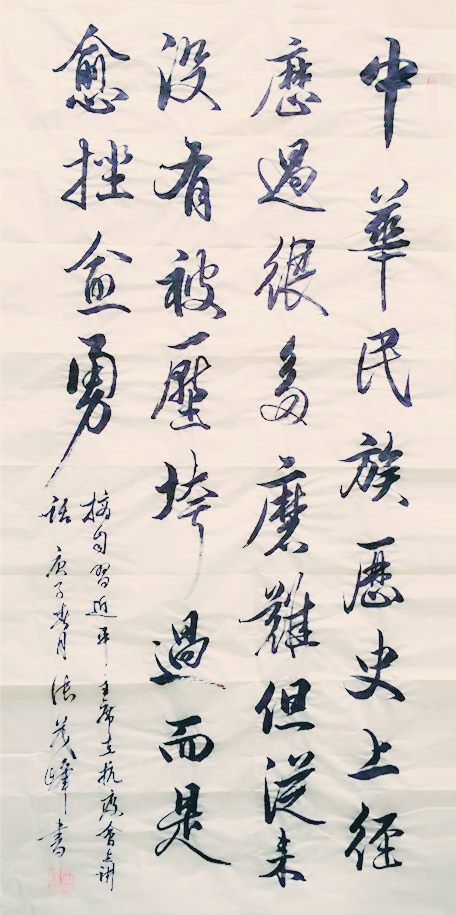 中華民族歷史上經
歷過很多磨難但從來
沒有被壓垮過而是
愈挫愈勇
摘自習近平主席在抗疫會上講
話 庚子春月 張茂峰書